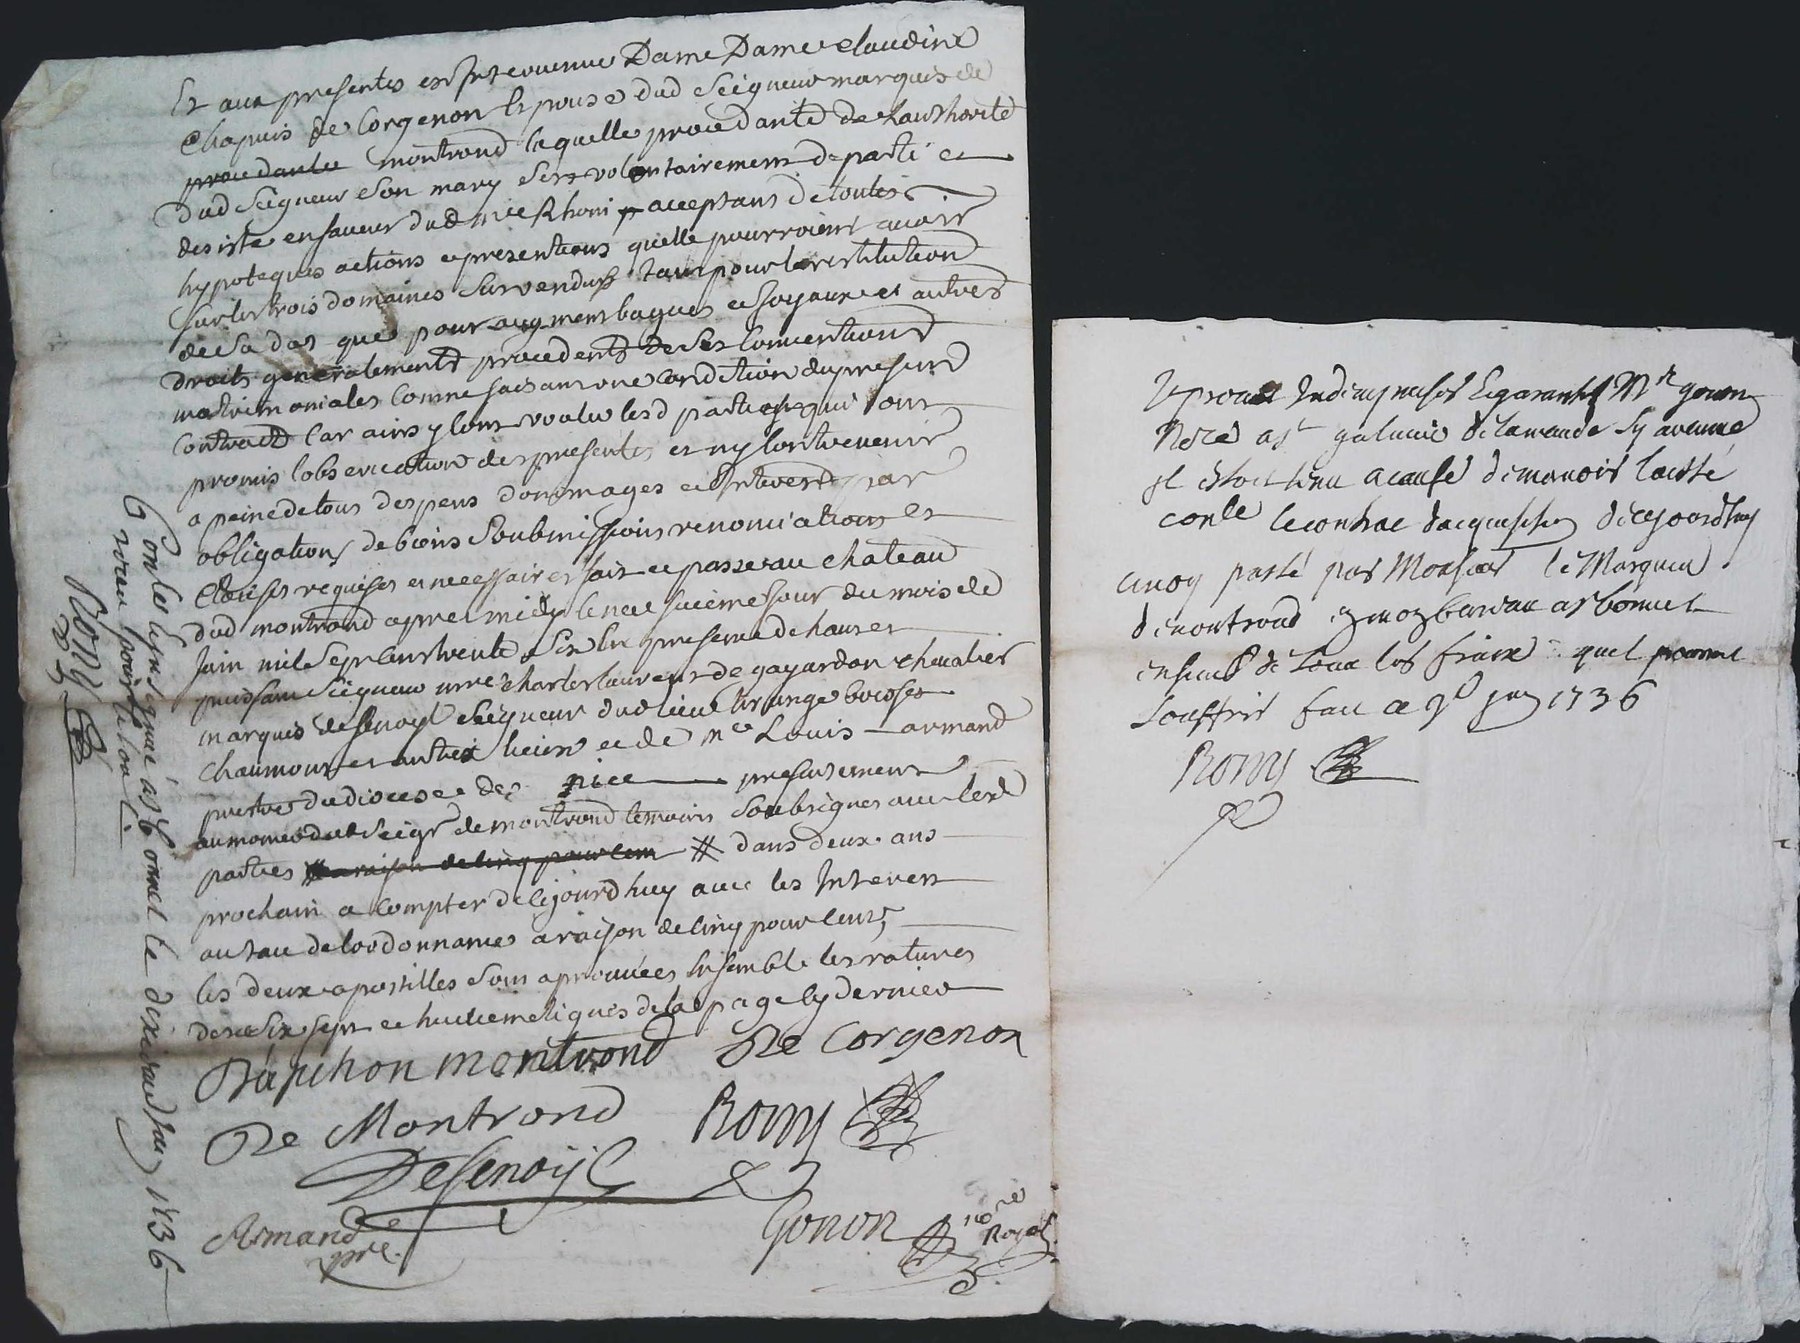 Et aux presentes est Intervenue Dame Dame claudine
Chapuis de Corgenon Epouse dud Seigneur marquis de
procedante montrond laquelle procedante de Lauthorité
dud seigneur son mary sest volontairement departi et
desiste en faveur dud mre Rhoni acceptant de toutes
hypoteques actions et pretentions quelle pourroient avoir
sur les trois domaines survendus tant pour la restitution
de sa dot que pour augment bagues et Joyaux et autres
droits generalement procedents de ses conventions
matrimoniales comme faisant une condition du present
contract Car ainsy lont voulu lesd parties qui ont
promis lobservation des presentes et ny contrevenir
a peine de tous despens dommages et Interest par
obligations de biens Soubmissions renonciations et
Clauses requises et necessaires fait et passé au chateau
dud montrond apres midy le neufvieme Jour du mois de
Juin mil Sept cent trente Six En presence de haut et
puissant Seigneur mre charles laurent de gayardon chevalier
marquis de fenoyl Seigneur dud lieu
chaumont et autres lieux et de mre Louis armand
prestre du diocese de nice presentement
aumonier dud Seigr de montrond temoins Soubsignes avec lesd
parties a raison de cinq pour cent # dans deux ans
prochain a compter de cejourdhuy avec les Interest
au taux de lordonnance a raison de cinq pour cent,
les deux apostilles sont aprouvées Ensemble les ratures
des Six Sept et huitieme lignes de la page cy derniere
Daphon montrond De Corgenon
De Montrond Rony
Defenoyl
Armand
pre.
Gonon nore
Royal
Conlé Insinué à St bonnet le dixieme Juin 1736
Rony
Je promet Indempniser Et garantir Mr gonon
Nore a St galmier de lamande Sy aucune
Il estoit tenu a cause de mavoir laissé
conlé le contrac dacquisition de cejourdhuy
a moy passé par Monsieur le Marquis
de montrond en mon bureau a St bonnet
ensemble de tous les fraix quel pourroit
Souffrir fait ce 9e juin 1736
Rony